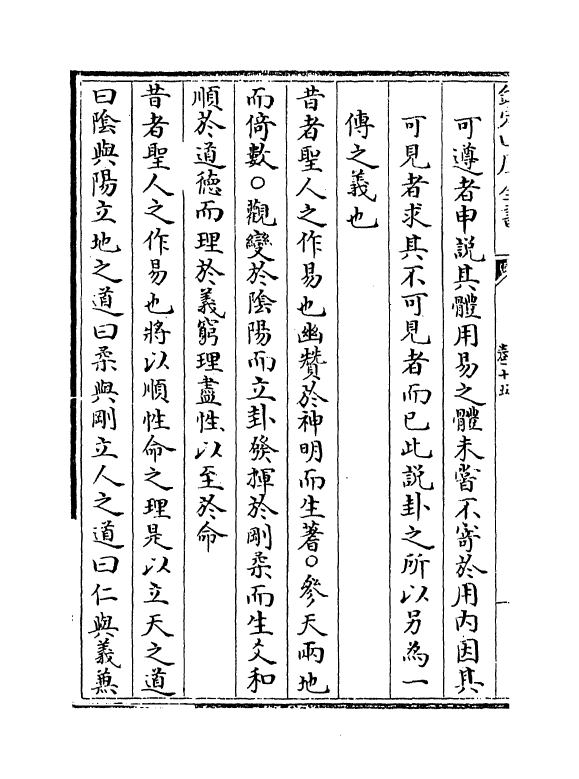 欽定四庫全書
卷十五
可遵者申說其體用易之體未嘗不寄於用内因其
可見者求其不可見者而已此說卦之所以另為一
傳之義也
昔者聖人之作易也幽贊於神明而生蓍○參天兩地
而倚數○觀變於陰陽而立卦發揮於剛柔而生爻和
順於道德而理於義窮理盡性以至於命
昔者聖人之作易也將以順性命之理是以立天之道
曰陰與陽立地之道曰柔與剛立人之道曰仁與義兼